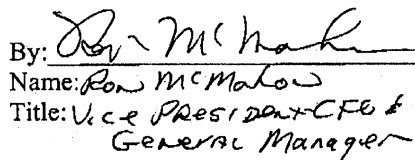 By: Ron McMahon
Name: Ron McMahon
Title: Vice President-CFO &
General Manager